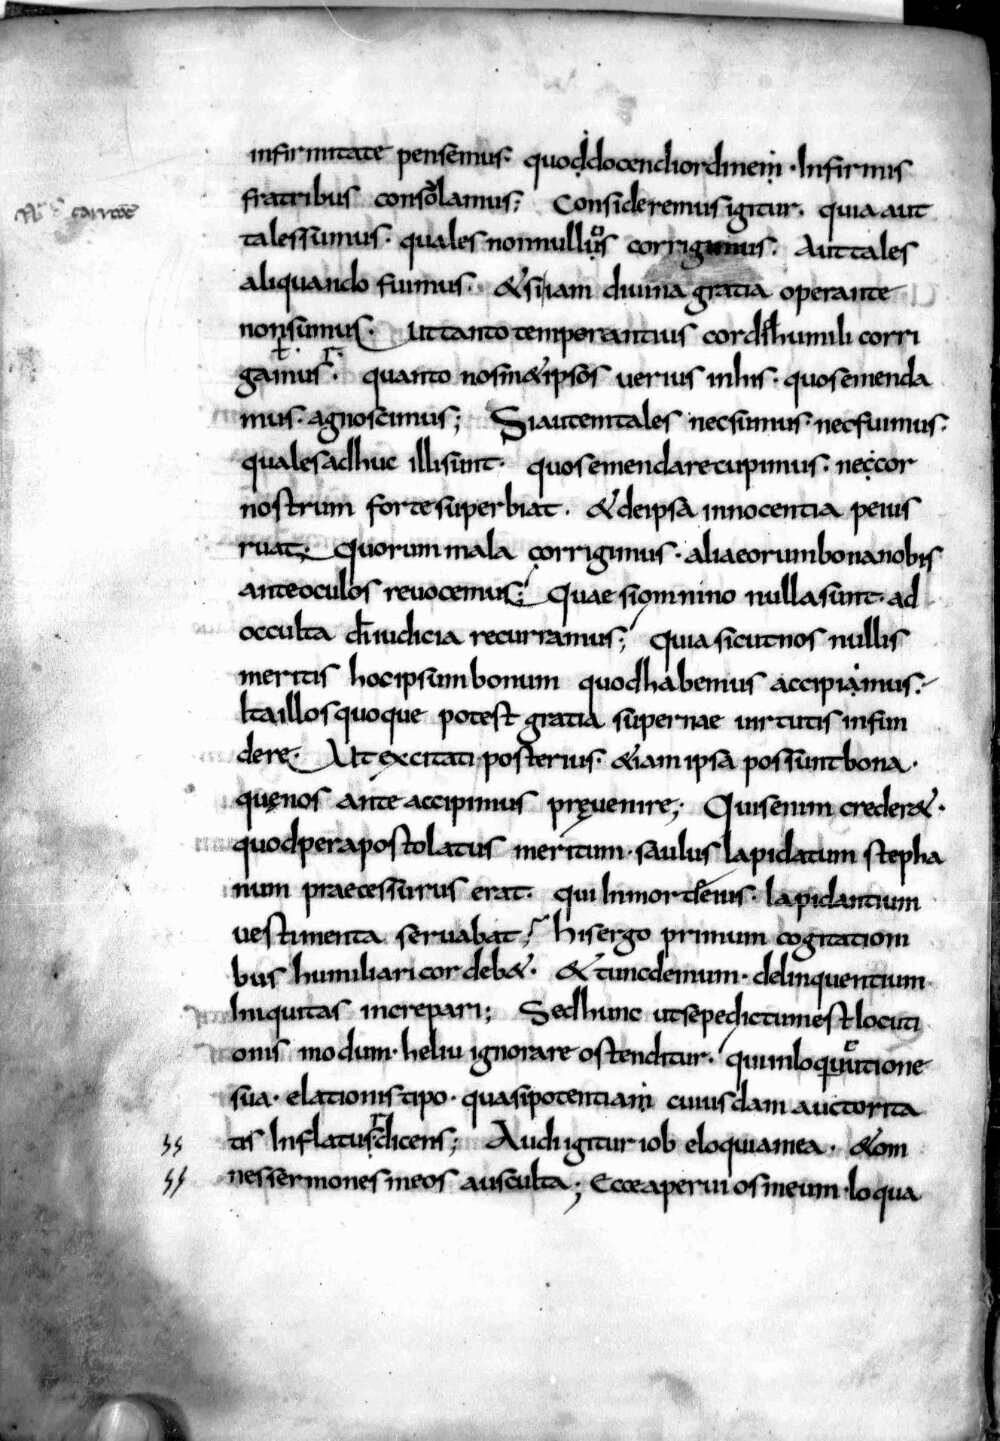 infirmitate pensemus. quod docendi ordinem. Infirmis
fratribus consolamus; Consideremus igitur. quia aut
tales sumus. quales nonnullos corrigimus. Aut tales
aliquando fuimus. & si iam diuina gratia operante
non sumus. Ut tanto temperantius corde humili corri
gamus. quanto nosm&ipsos uerius in his. quos emenda
mus. agnoscimus; Si autem tales nec sumus. nec fuimus.
quales adhuc illi sunt. quos emendare cupimus. nec cor
nostrum forte superbiat. & de ipsa innocentia peius
ruat. Quorum mala corrigimus. alia eorum bona nobis
ante oculos reuocemus; Quae si omnino nulla sunt. ad
occulta dī iudicia recurramus; Quia sicut nos nullis
meritis hoc ipsum bonum quod habemus accipiamus.
Ita illos quoque potest gratia supernae uirtutis infun
dere. Ut excitati posterius. &iam ipsa possunt bona.
quę nos ante accipimus pręuenire; Quis enim creder&.
quod per apostolatus meritum. saulus lapidatum stepha
num praecessurus erat. qui In morte eius. lapidantium
uestimenta seruabat; his ergo primum cogitationi
bus humiliari cor deb&. & tunc demum. delinquentium
Iniquitas increpari; Sed hunc ut sepe dictum est locuti
onis modum. heliu ignorare ostenditur. qui in loqutione
sua. elationis tipo. quasi potentiam cuiusdam auctorita
tis Inflatus. dicens; Audi igitur iob eloquia mea. & om
nes sermones meos ausculta; Ecce aperui os meum. loqua